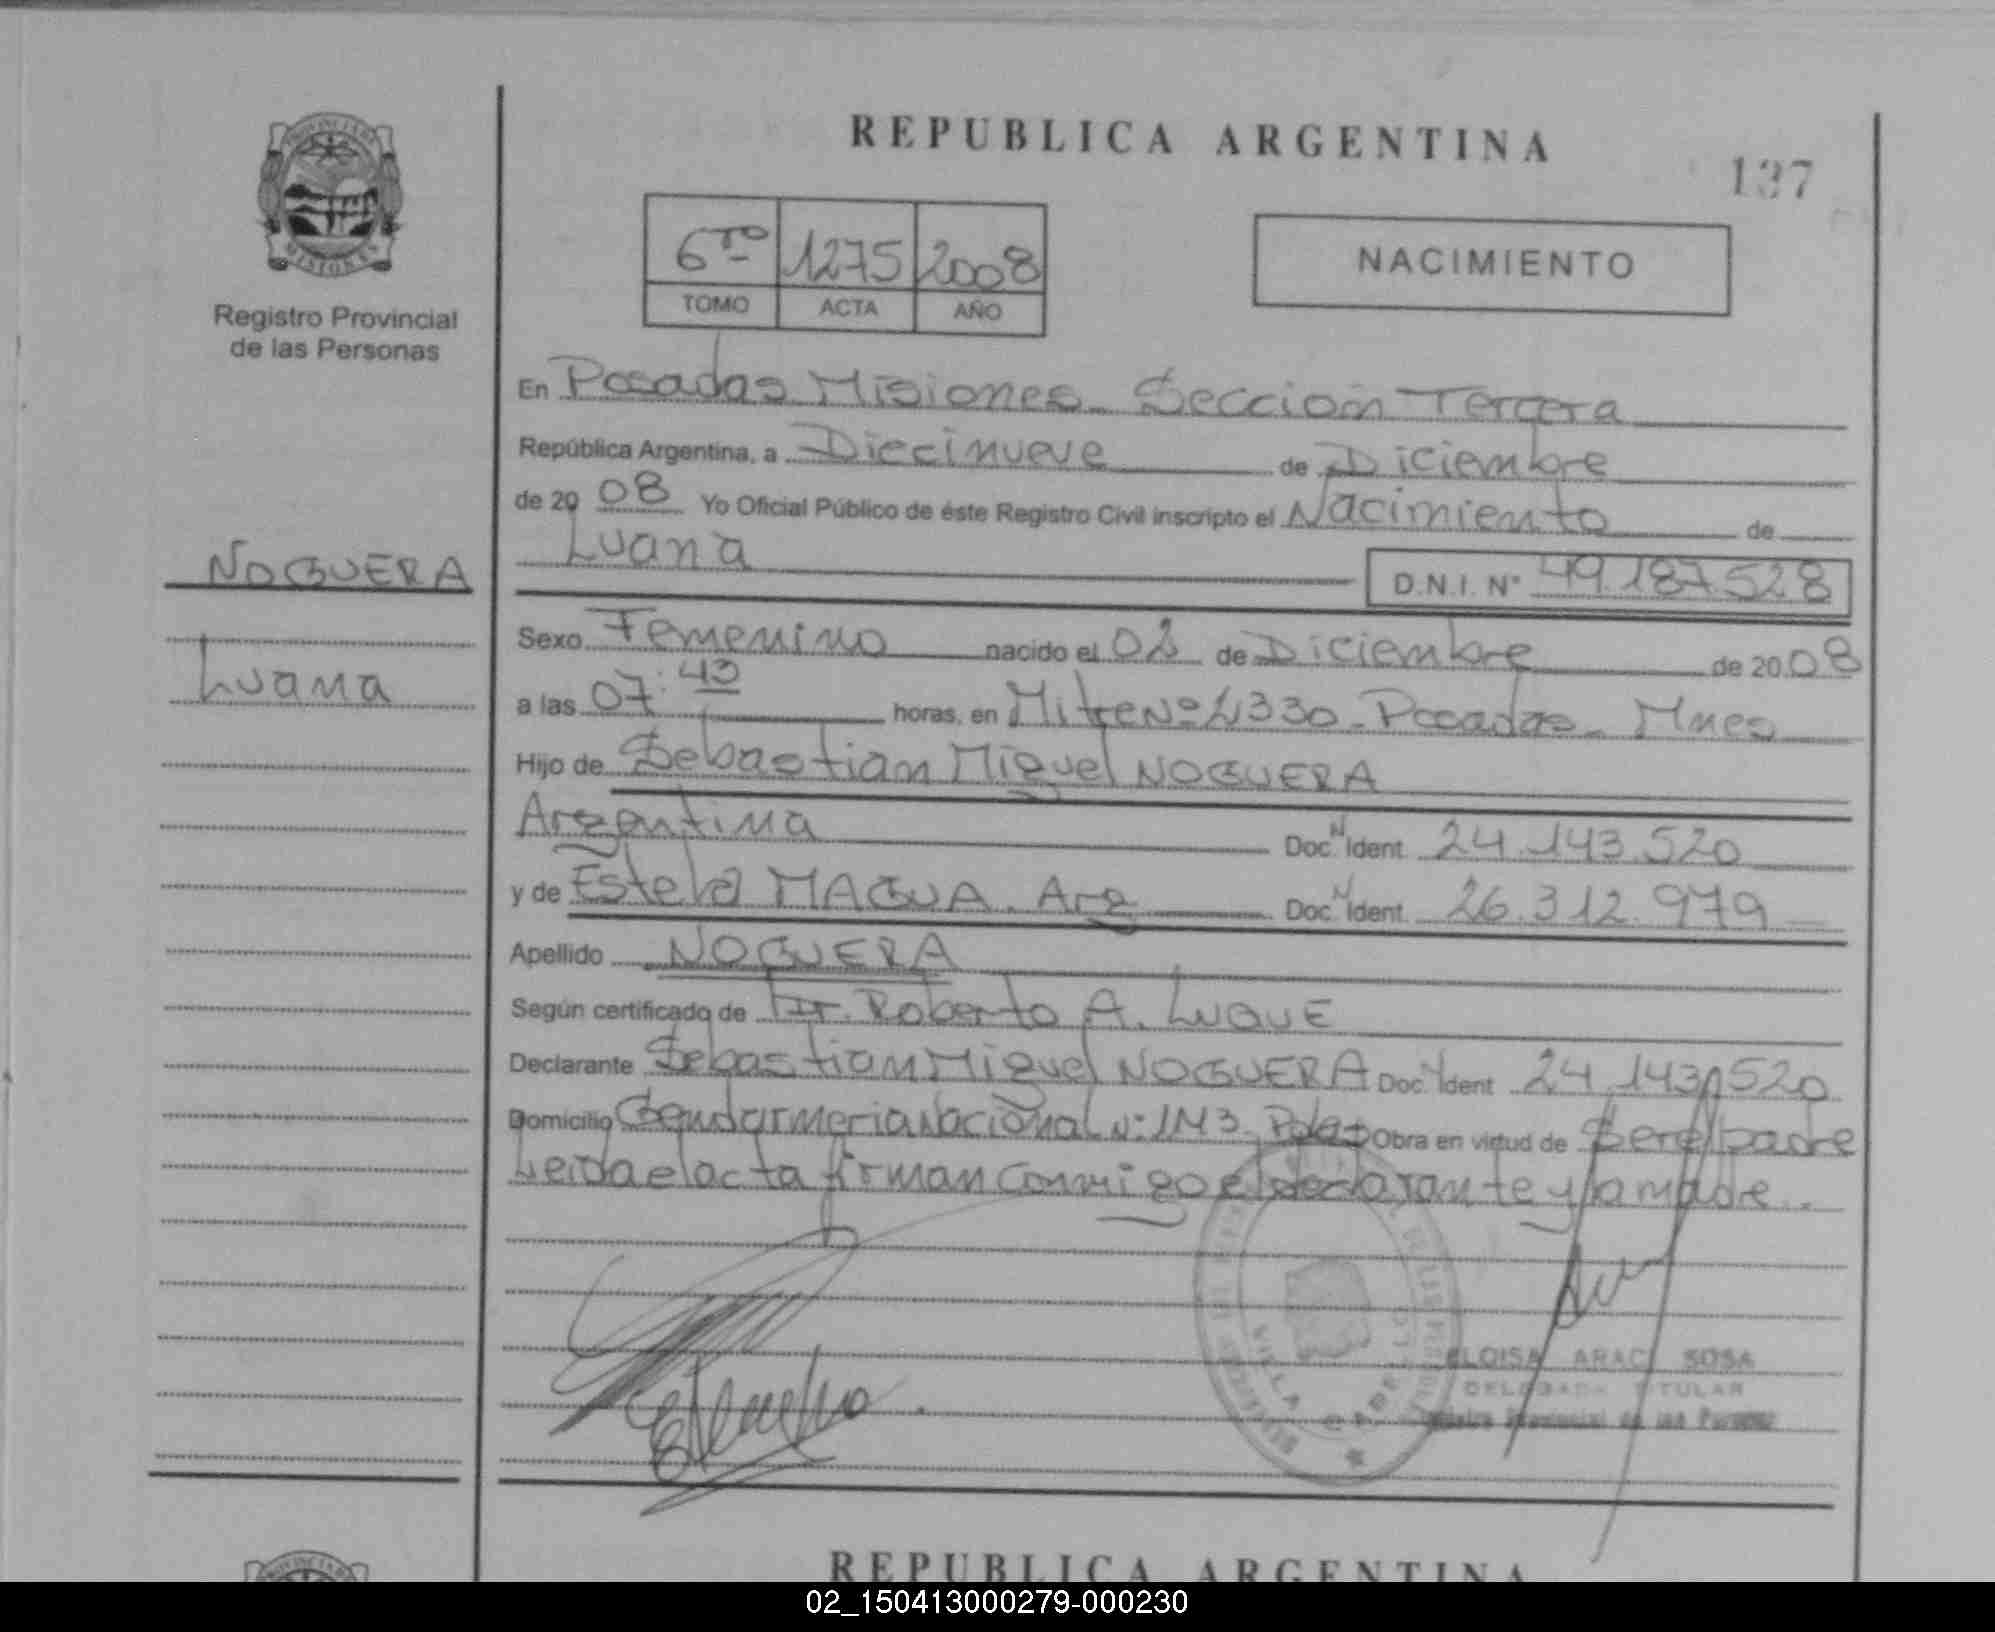 REPUBLICA ARGENTINA
137
PROVINCIA DE
MISIONES
Registro Provincial
de las Personas
6to 1275 2008
TOMO ACTA AÑO
NACIMIENTO
En Posadas Misiones - Sección Tercera
República Argentina, a Diecinueve de Diciembre
de 20 08 Yo Oficial Público de éste Registro Civil inscripto el Nacimiento de
Luana D.N.I. N° 49.187.528
NOGUERA
Luana
Sexo Femenino nacido el 02 de Diciembre de 20 08
a las 07:43 horas, en Mitre Nº 2330 - Posadas - Mnes
Hijo de Sebastian Miguel NOGUERA
Argentina Doc. N Ident. 24.143.520
y de Estela MAGUA. Arg Doc. N Ident. 26.312.979
Apellido NOGUERA
Según certificado de Dr. Roberto A. LUQUE
Declarante Sebastian Miguel NOGUERA Doc. N Ident 24.143.520
Domicilio Gendarmeria Nacional N: 1M3 - Pdas Obra en virtud de Ser el padre
Leida el acta firman conmigo el declarante y la madre.
VILLA CABELLO
ELOISA ARACI SOSA
DELEGADA TITULAR
Registro Provincial de las Personas
REPUBLICA ARGENTINA
02_150413000279-000230